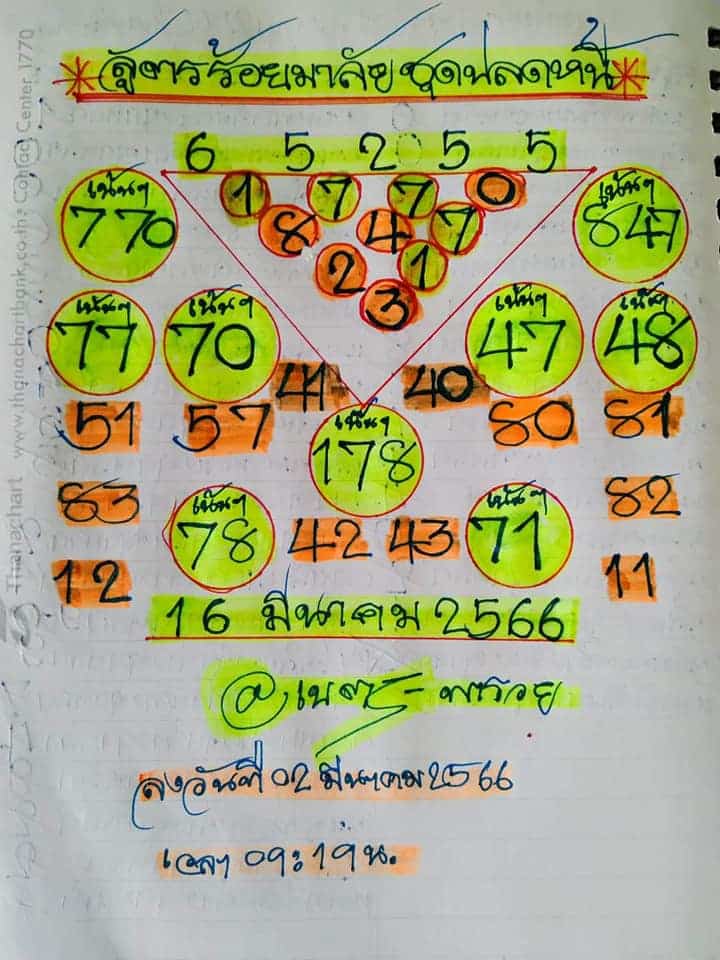 สูตรร้อยมาลัย ชุดปลดหนี้
6 5 2 5 5
1 7 7 0
8 4 7
2 1
3
เน้นๆ
770
เน้นๆ
847
เน้นๆ
77
เน้นๆ
70
เน้นๆ
47
เน้นๆ
48
41 40
51 57 80 81
เน้นๆ
178
83 82
เน้นๆ
78
42 43
เน้นๆ
71
12 11
16 มีนาคม 2566
ลงวันที่ 02 มีนาคม 2566
เวลา 09:19 น.
Thanachart www.thanachartbank.co.th: Contact Center 1770